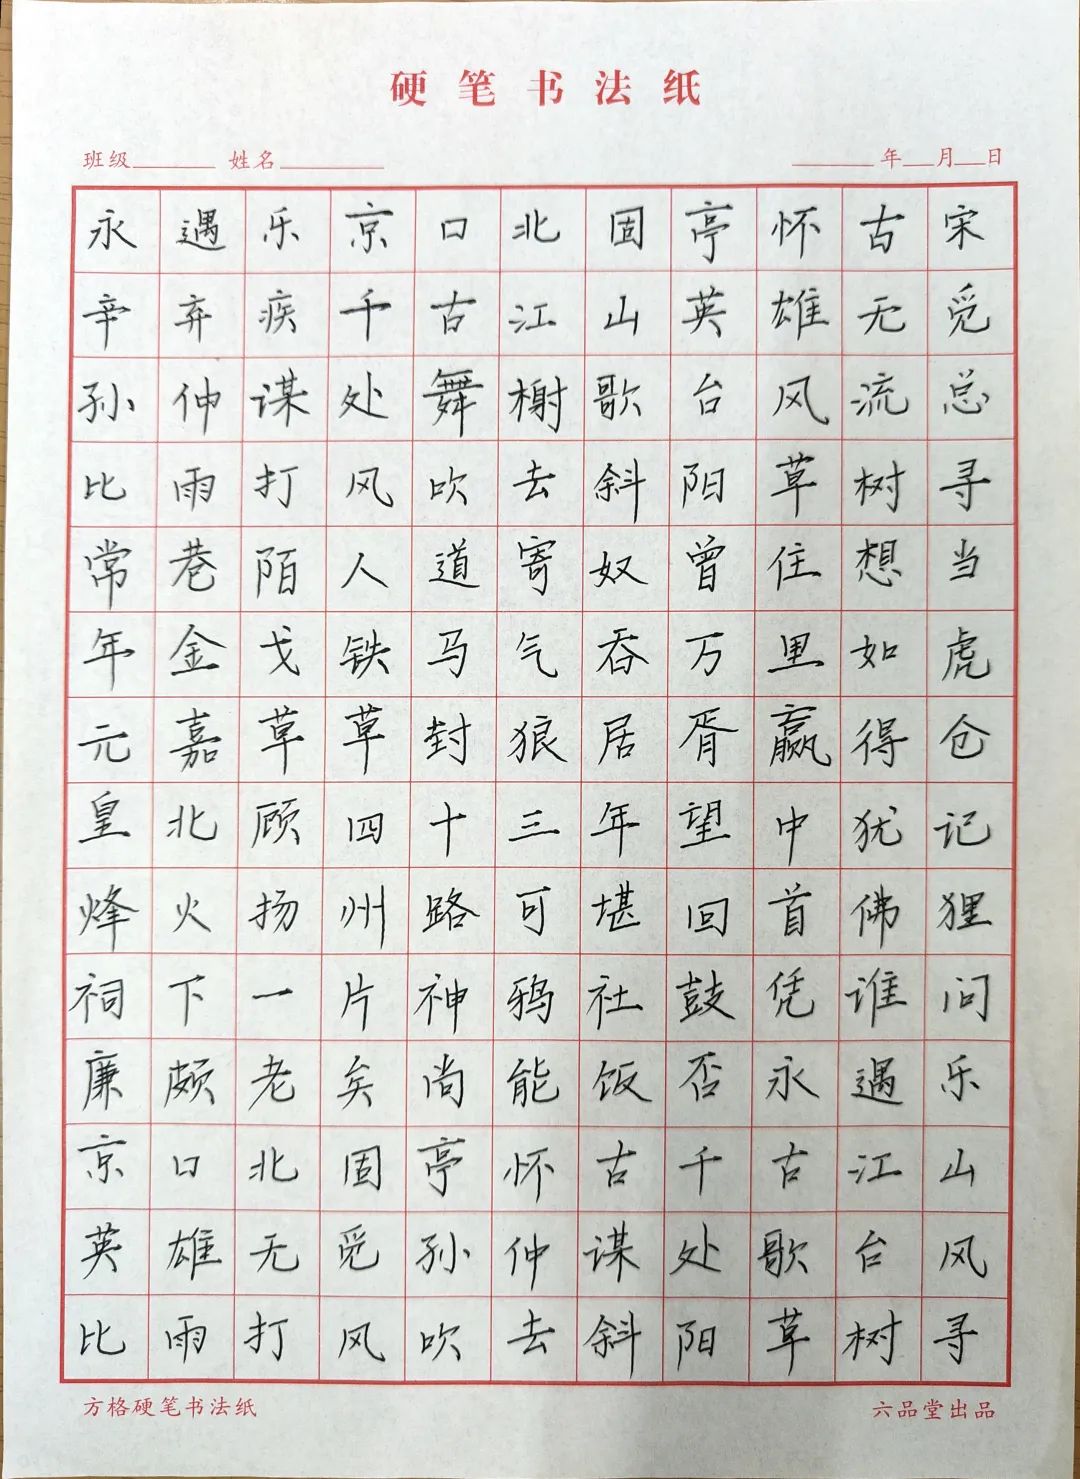 硬笔书法纸
班级 姓名 年 月 日
永遇乐京口北固亭怀古宋
辛弃疾千古江山英雄无觅
孙仲谋处舞榭歌台风流总
比雨打风吹去斜阳草树寻
常巷陌人道寄奴曾住想当
年金戈铁马气吞万里如虎
元嘉草草封狼居胥赢得仓
皇北顾四十三年望中犹记
烽火扬州路可堪回首佛狸
祠下一片神鸦社鼓凭谁问
廉颇老矣尚能饭否永遇乐
京口北固亭怀古千古江山
英雄无觅孙仲谋处歌台风
比雨打风吹去斜阳草树寻
方格硬笔书法纸 六品堂出品